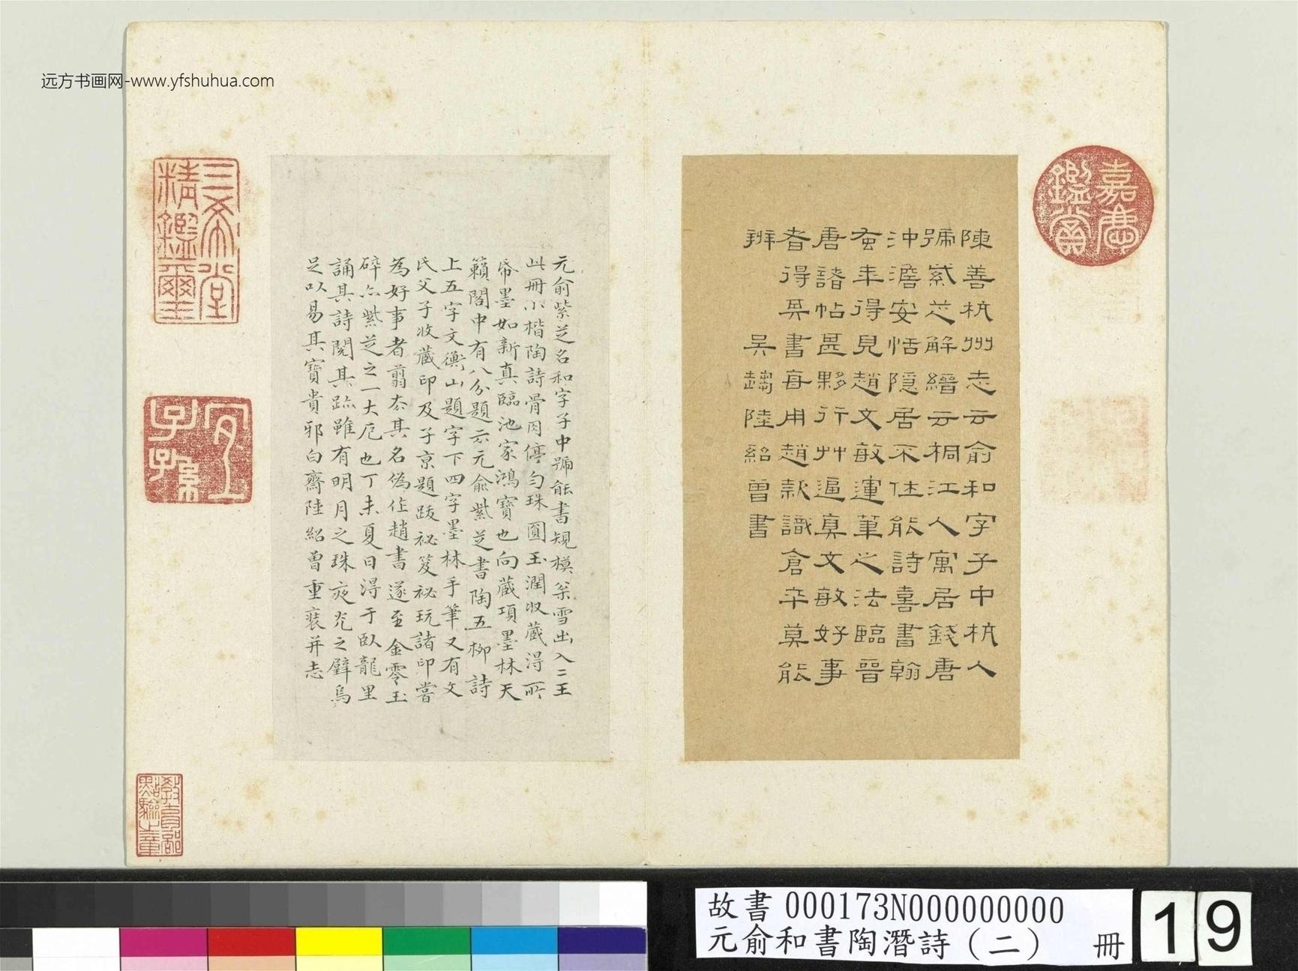 远方书画网-www.yfshuhua.com
嘉慶鑑賞
陳善杭州志云俞和字子中杭人
號紫芝解縉云桐江人寓居錢唐
沖澹安恬隱居不仕能詩喜書翰
蚤年得見趙文敏運筆之法臨晉
唐諸帖甚夥行艸逼真文敏好事
者得其書每用趙款識倉卒莫能
辨
吳趨陸紹曾書
元俞紫芝名和字子中號能書規模
雪出入二王
此冊小楷陶詩骨肉停勻珠圓玉潤收藏得所
帋墨如新真臨池家鴻寶也向藏項墨林天
籟閣中有八分題云元俞紫芝書陶五柳詩
上五字文衡山題字下四字墨林手筆又有文
氏父子收藏印及子京題跋祕笈祕玩諸印嘗
為好事者翦去其名偽作趙書遂至金零玉
碎亦紫芝之一大厄也丁未夏日得于臥龍里
誦其詩閱其跡雖有明月之珠夜光之璧烏
足以易其寶貴邪白齋陸紹曾重裝并志
三希堂精鑑璽
宜子孫
故書 000173N000000000
元俞和書陶潛詩（二） 冊
19